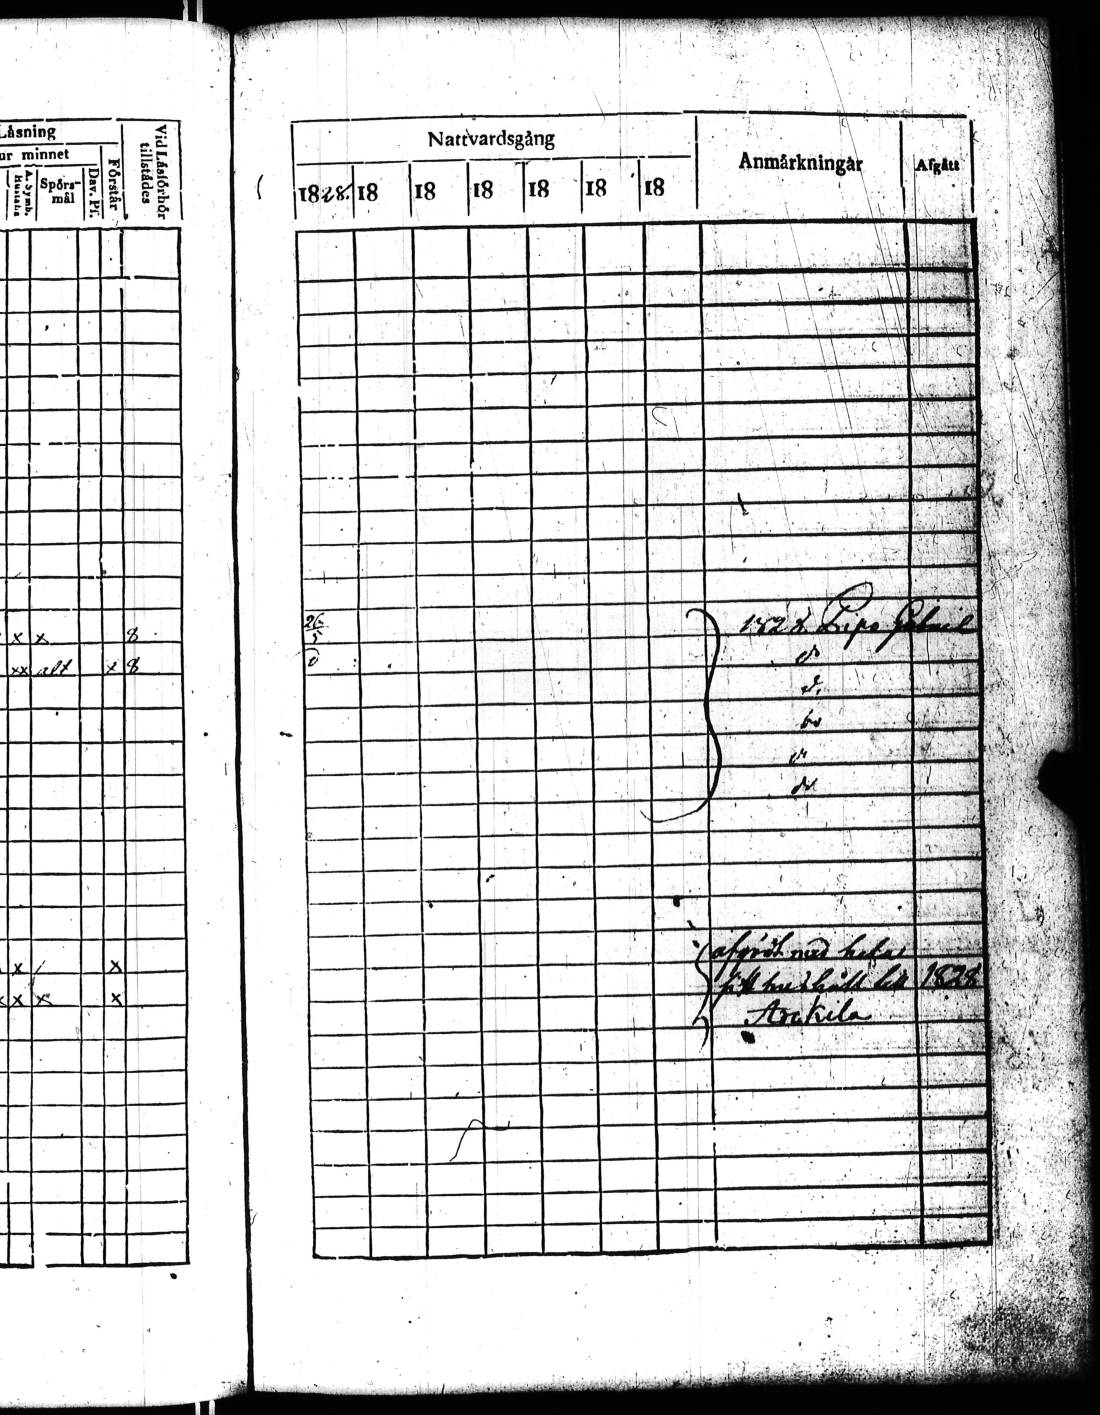 Läsning
ur minnet
A. Symb.
Hustafla
Spörs-
mål
Dav. Ps.
Förstår
Vid Läsförhör
tillstädes
Nattvardsgång
Anmärkningar
Afgått
1828. 18 18 18 18 18 18
x x 8 26/5 1828 Gabriel
xx alt x 8 do
d:
do
do
x x
x x x
afgått med hela
sitt hushåll till 1828